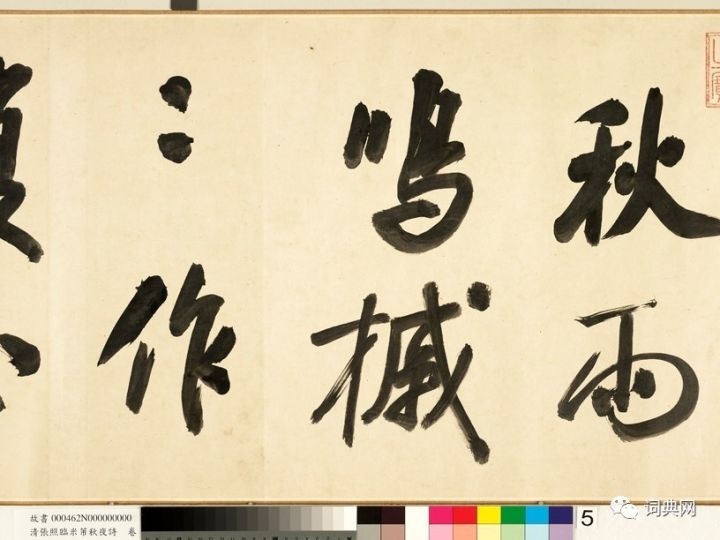 秋雨
鳴槭
〻作
故書 000462N000000000
清張照臨米芾秋夜詩 卷
5
词典网